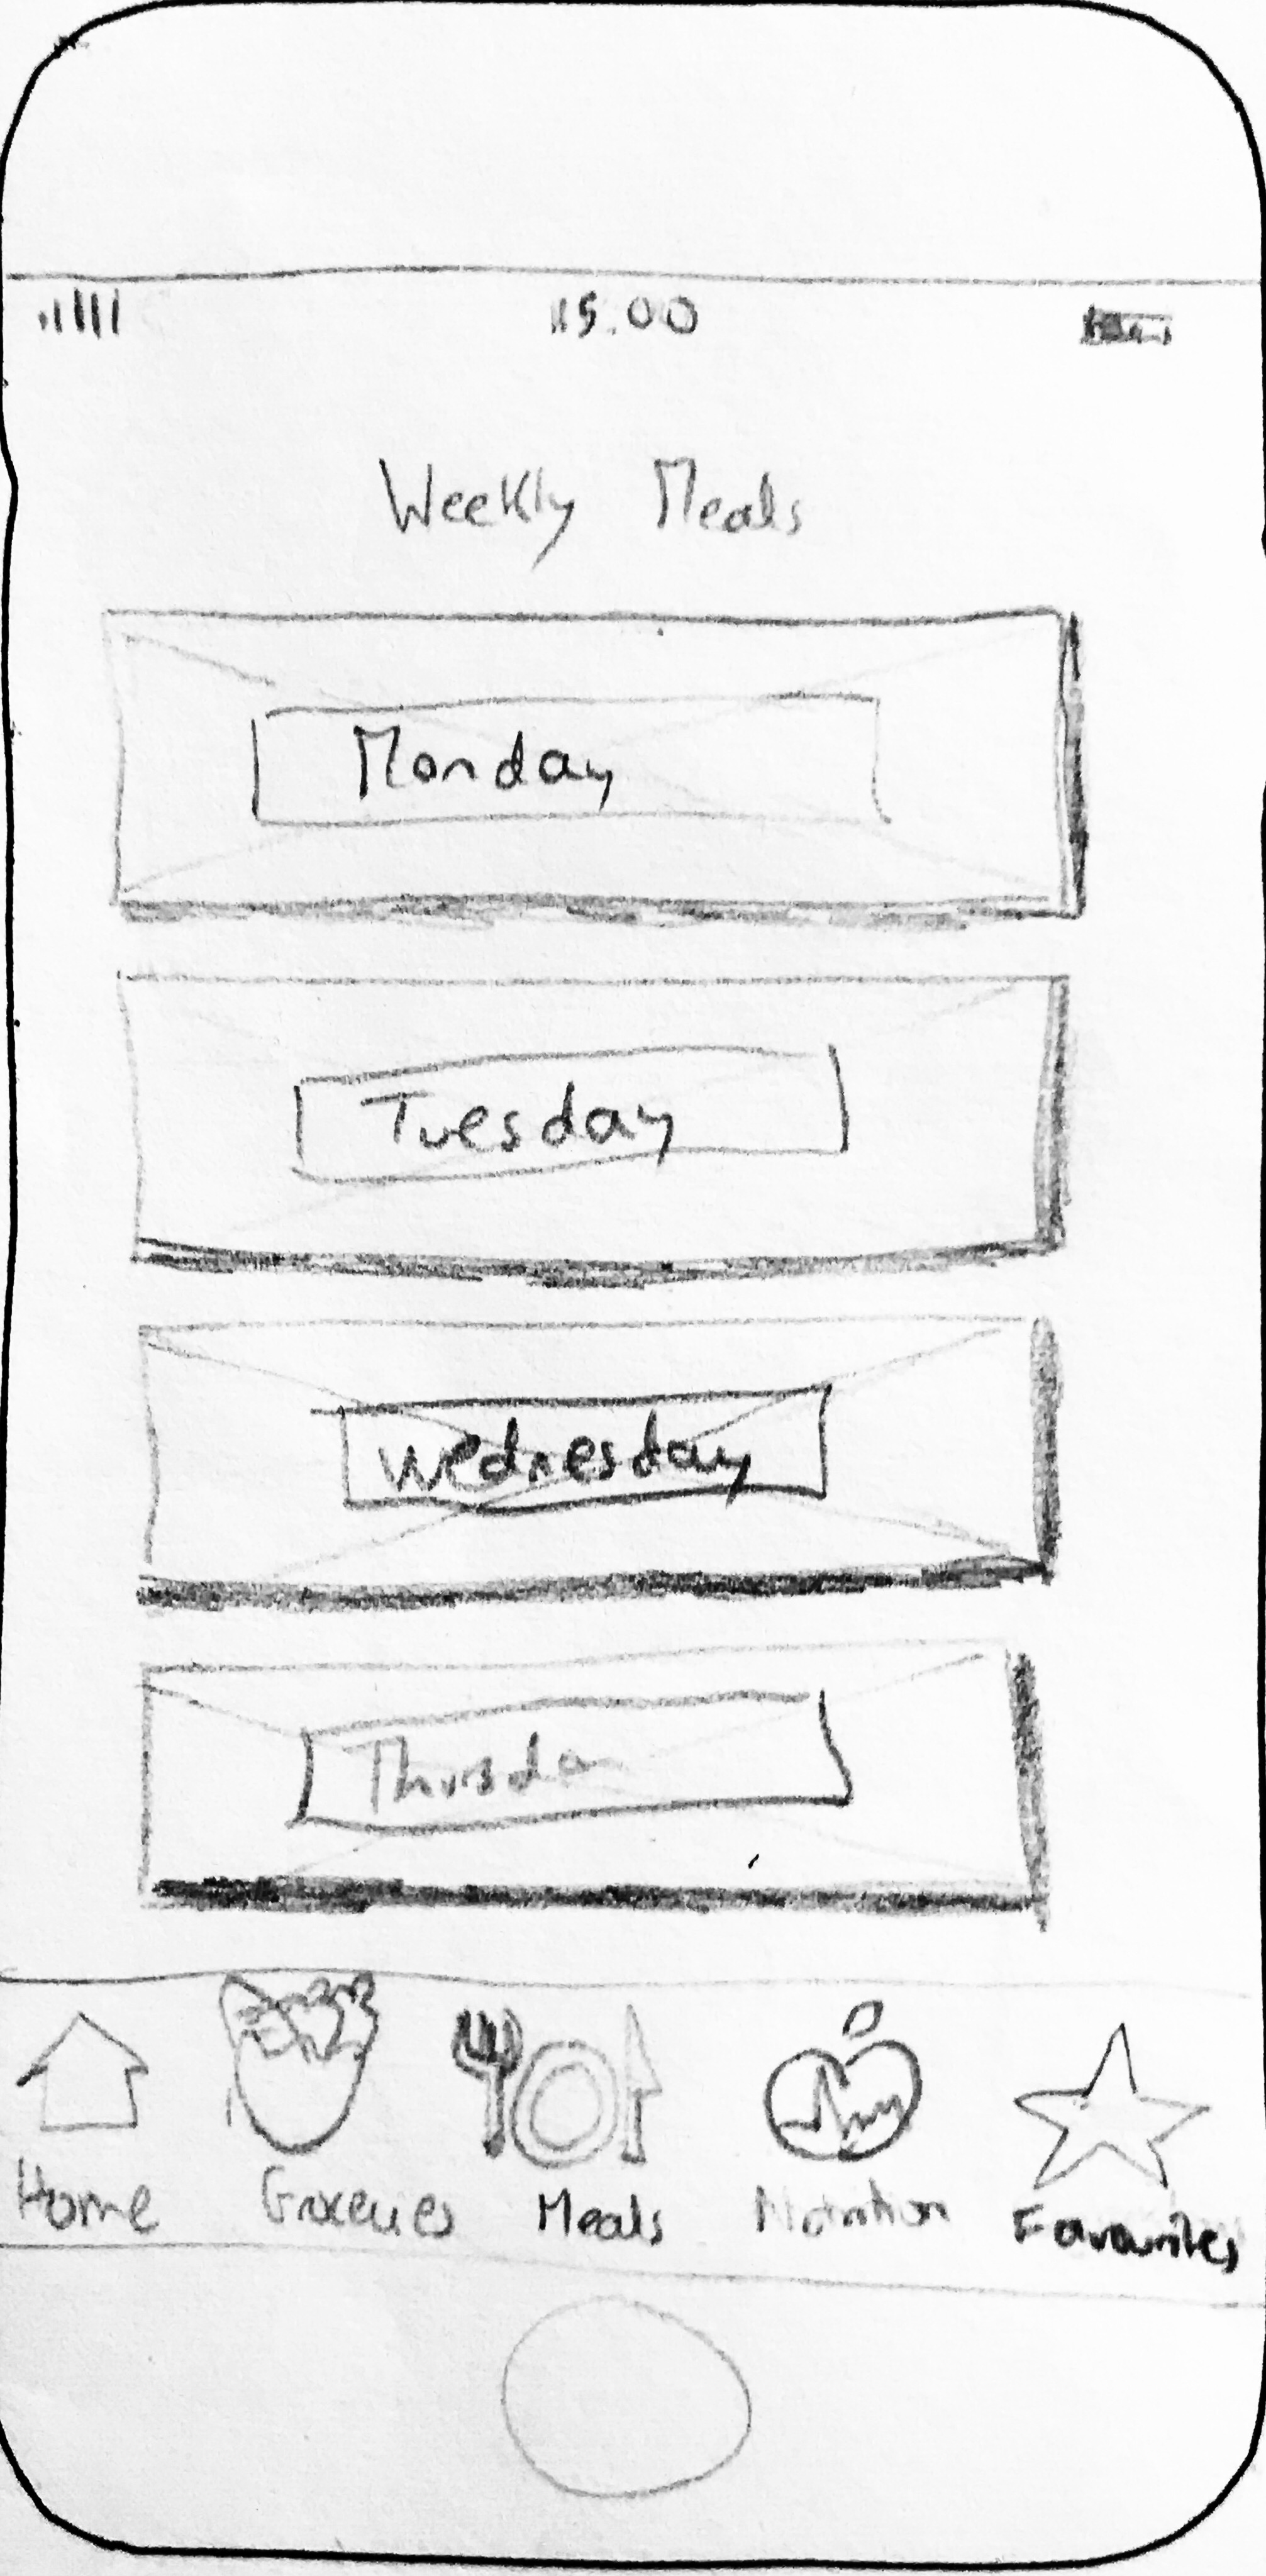 15.00
Weekly Meals
Monday
Tuesday
Wednesday
Thursda
Home Groceries Meals Nutrition Favourites